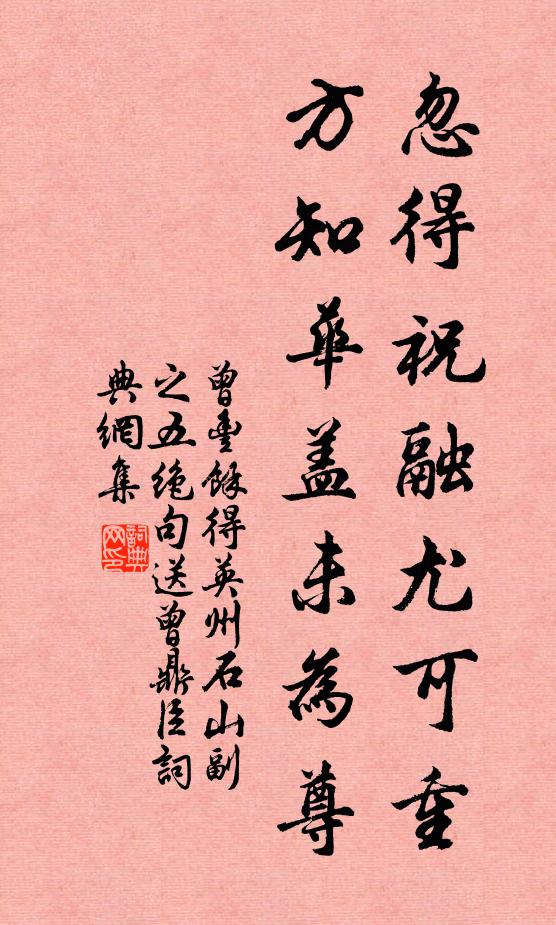 忽得祝融尤可重
方知華蓋未為尊
曾豐餘得英州石山副
之五絶句送曾鼎臣詞
典網集
詞典网印